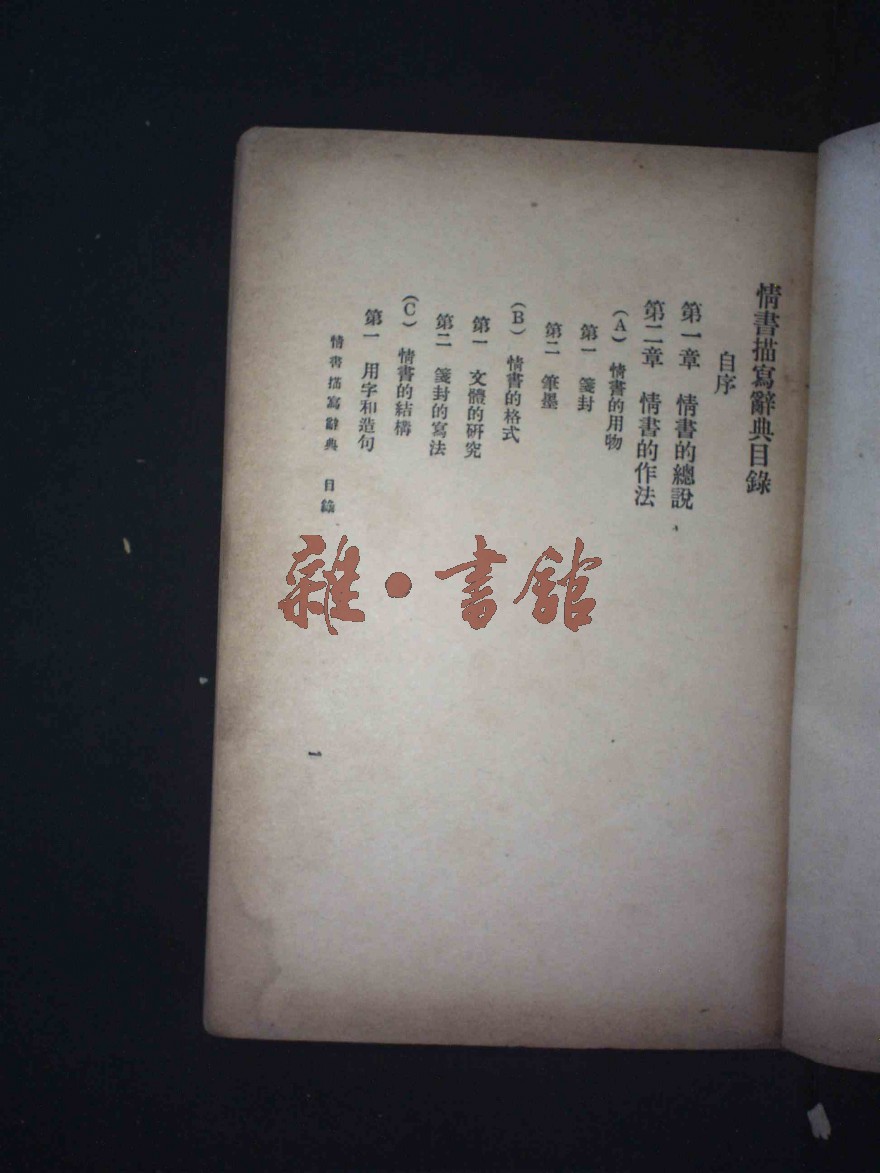 情書描寫辭典目錄
自序
第一章 情書的總說
第二章 情書的作法
(A) 情書的用物
第一 箋封
第二 筆墨
(B) 情書的格式
第一 文體的研究
第二 箋封的寫法
(C) 情書的結構
第一 用字和造句
情書描寫辭典 目錄
一
雜·書館